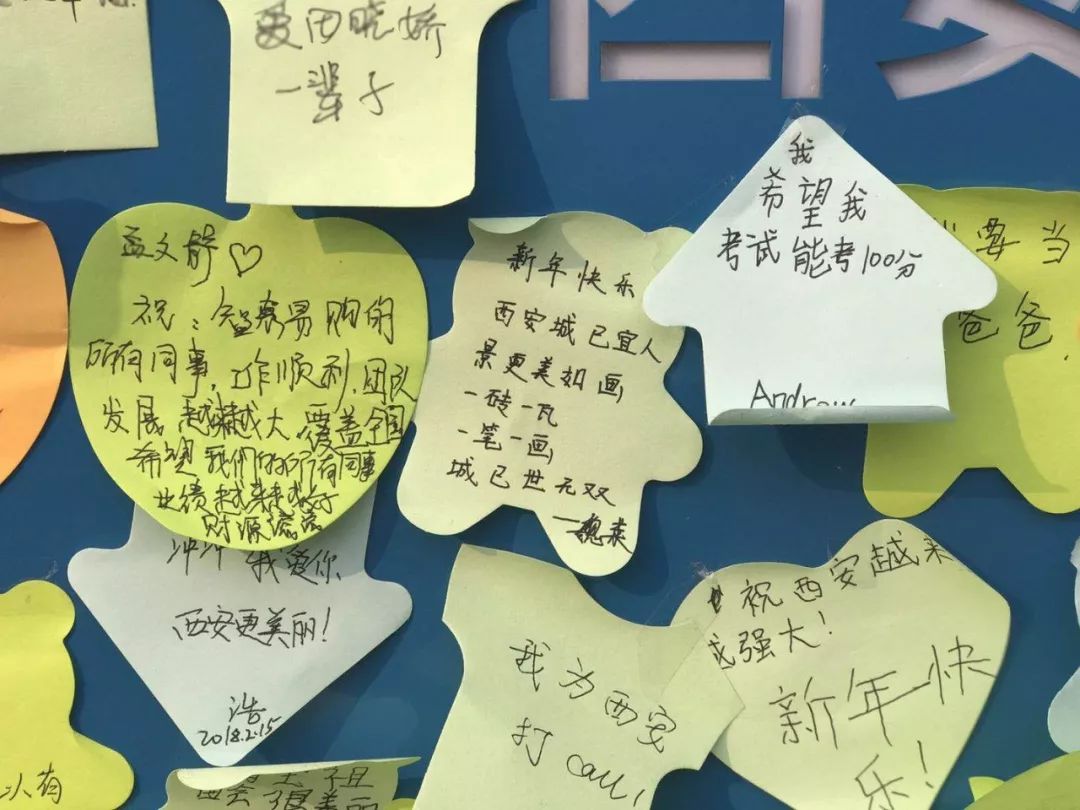 爱田晓娇
一辈子
孟文舒♡
祝：智慧易购的
所有同事，工作顺利，团队
发展越来越大，覆盖全国
希望我们的所有同事
业绩越来越好
财源滚滚
新年快乐
西安城已宜人
景更美如画，
一砖一瓦
一笔一画，
城已世无双
我
希望我
考试能考100分
Andrew
要当
爸爸.
冲冲 我爱你
西安更美丽!
浩
2018.2.15
我为西安
打call!
祝西安越来
越强大!
新年快
乐!
以有